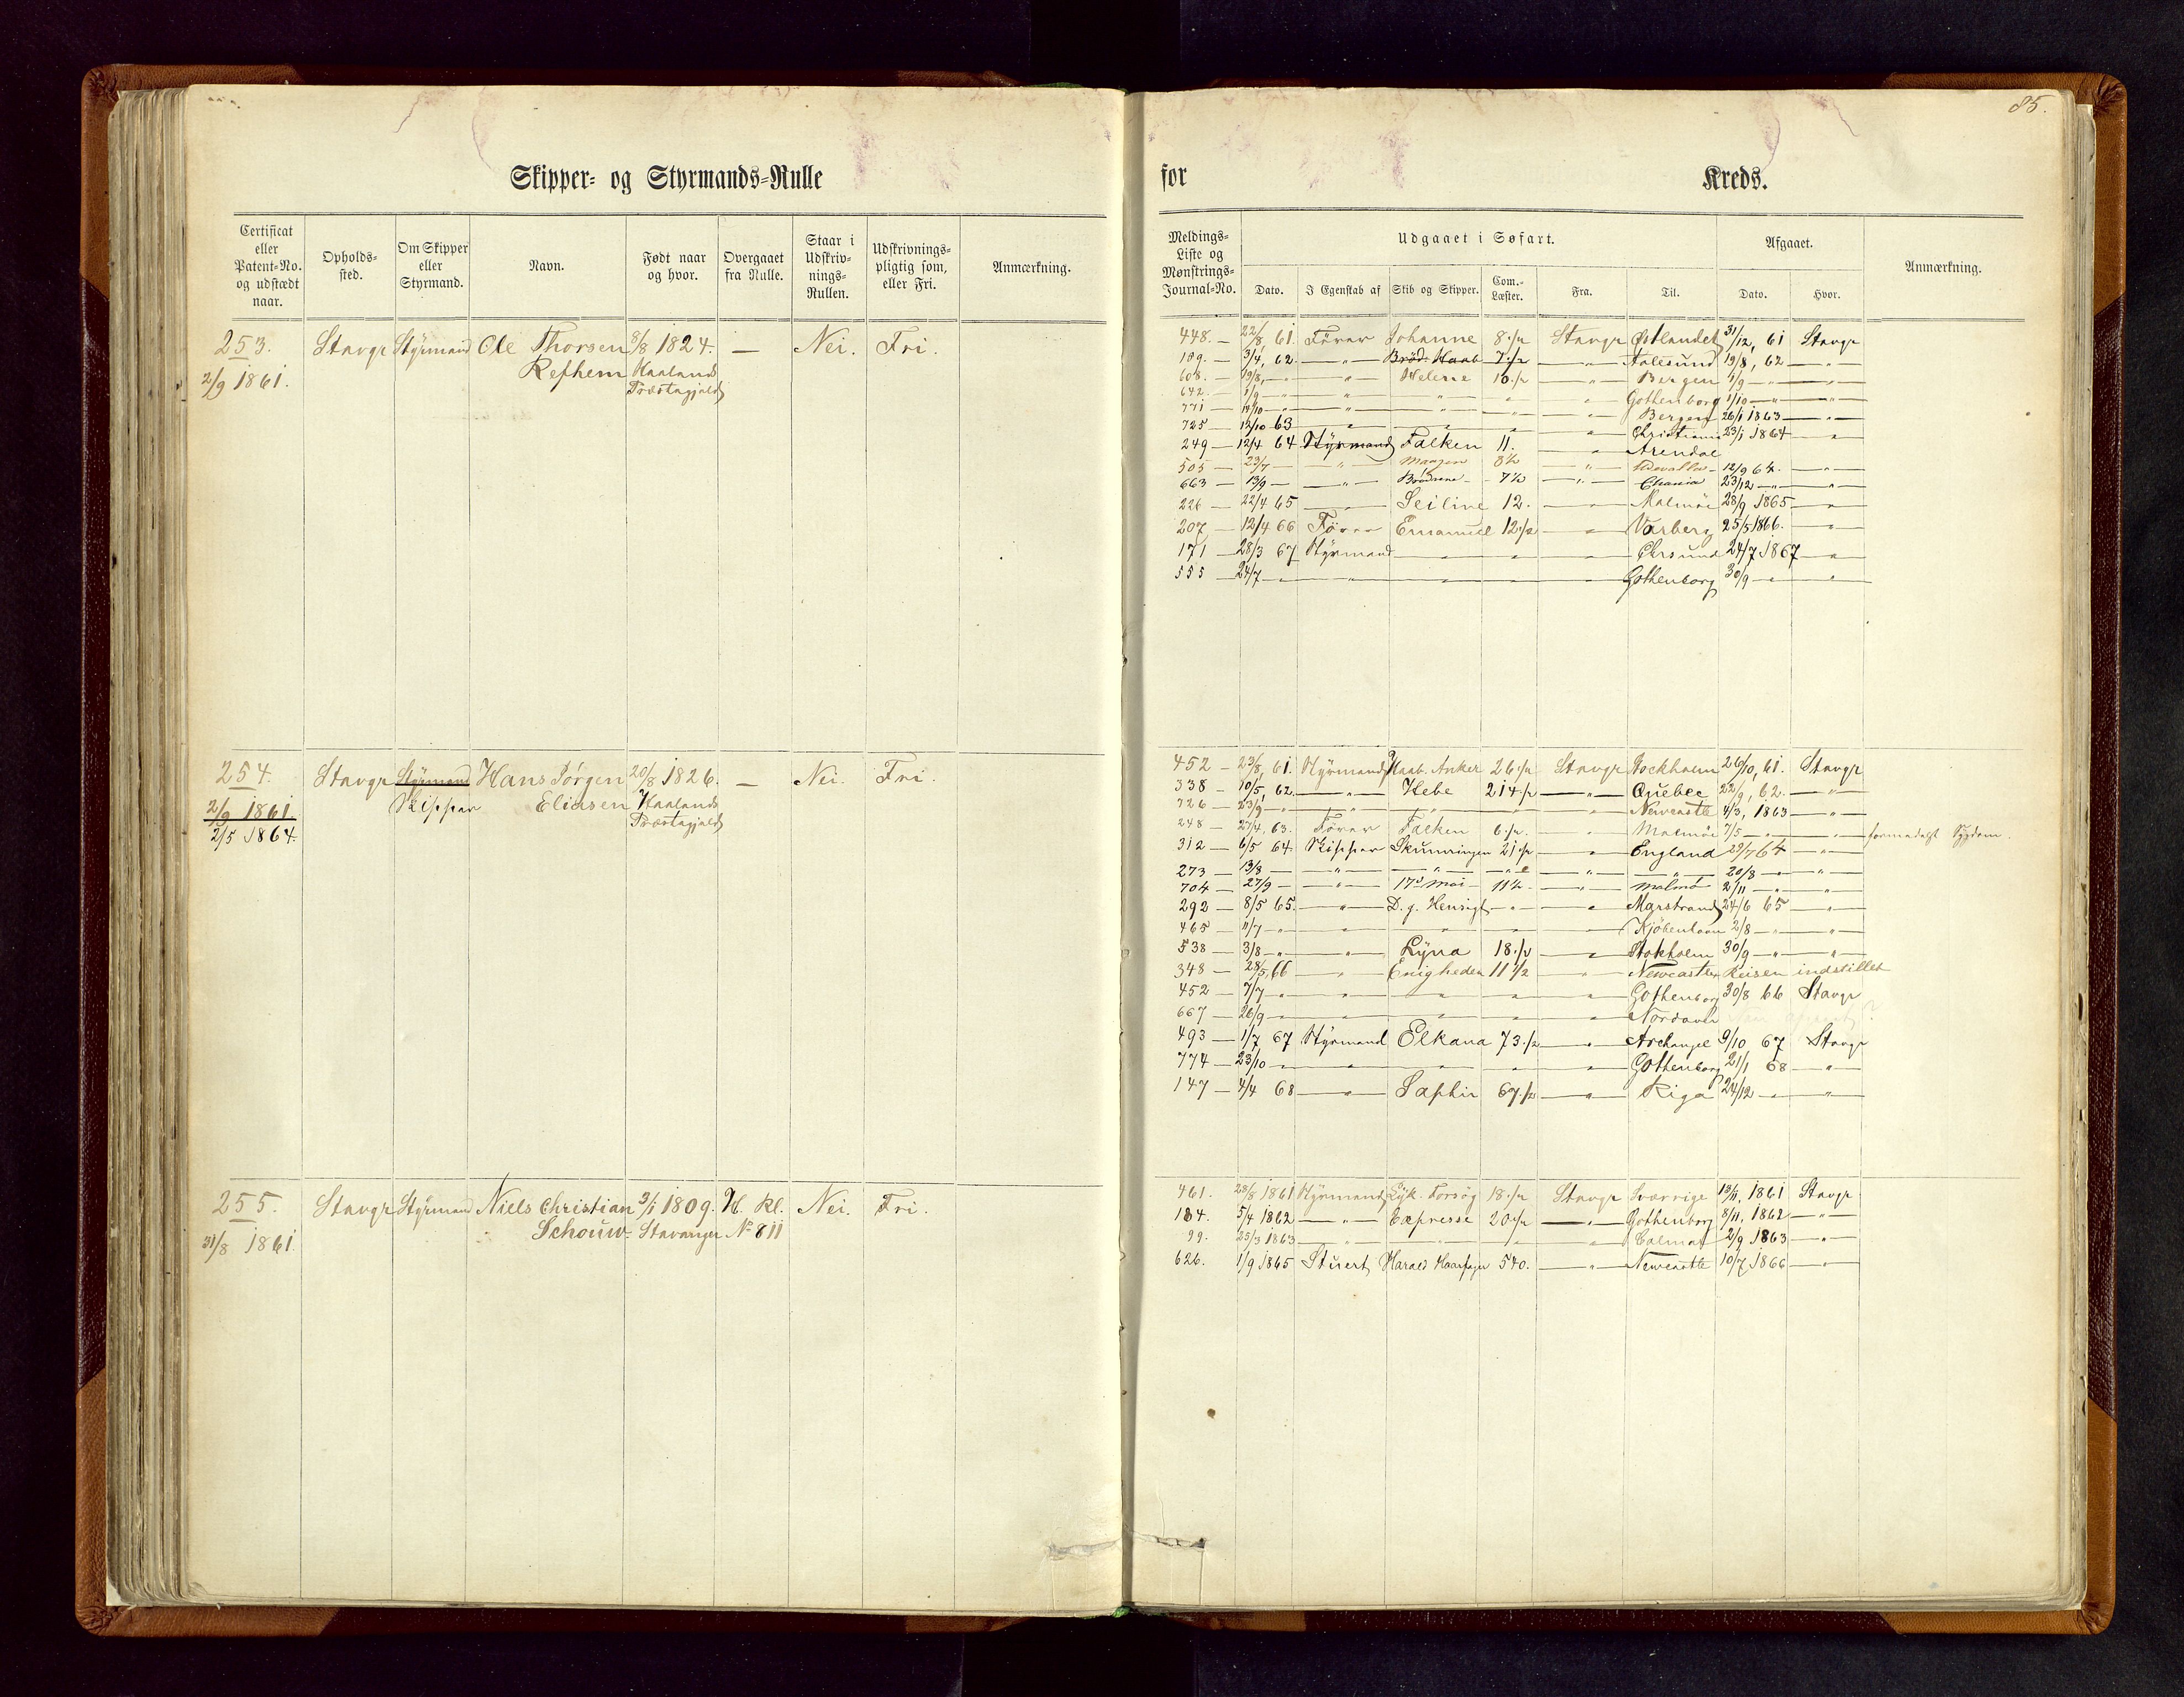 85.
Skipper= og Styrmands=Rulle
for Kreds.
Certificat eller Patent=No. og udstædt naar.
Opholds=sted.
Om Skipper eller Styrmand.
Navn.
Født naar og hvor.
Overgaaet fra Rulle.
Staar i Udskriv=nings=Rullen.
Udskrivnings=pligtig som, eller Fri.
Anmærkning.
Meldings=Liste og Mønstrings=Journal=No.
Udgaaet i Søfart.
Dato. I Egenskab af Skib og Skipper. Com.=Læster. Fra. Til.
Afgaaet.
Dato. Hvor.
Anmærkning.
253. Stavgr Styrmand Ole Thorsen 8/8 1824. — Nei. Fri.
2/9 1861. Refhem Haalands
Præstegjeld
448. — 22/8, 61. Fører Johanne 8 1/2 Stavgr Østlandet 31/12, 61 Stavgr
109. — 3/4, 62 — " — Brød. Haab 7 1/2 — " — Aalesund 19/8, 62 — " —
608. — 19/8, — " — " — Helene 10 1/2 — " — Bergen 1/9 — " — " —
642. — 1/9 — " — " — " — " — " — Gothenborg 1/10 — " — " —
771 — 14/10 — " — " — " — " — " — Bergen 26/1 1863 — " —
725 — 12/10 63 — " — " — " — " — Christiania 23/1 1864 — " —
249 — 12/4 64 Styrmand Falken 11. — " — Arendal
505 — 23/7 — — " — 8 1/2 — " — Udevalla — 12/9 64. — " —
663 — 13/9 — — " — Brødrene — 7 1/2 — " — Chania 23/12 — " — " —
226 — 22/4 65 — " — Seiline 12. — " — Malmöe 28/9 1865 — " —
207 — 12/4 66 Fører Emanuel 12 1/2 — " — Varberg 25/5 1866. — " —
171 — 28/3 67 Styrmand — " — " — " — Ekrsund 24/7 1867 — " —
555 — 24/7 — " — " — " — " — " — Gothenborg 30/9 — " — " —
254. Stavgr Styrmand Hans Jørgen 20/8 1826. — Nei. Fri.
2/9 1861. Skipper Eliasen Haalands
2/5 1864. Præstegjeld
452 — 23/8, 61. Styrmand Haab. Anker 26 1/2 Stavgr Stockholm 26/10, 61. Stavgr
338 — 10/5, 62 — " — Hebe 214 1/2 — " — Quebec 22/9, 62. — " —
726 — 23/9 — " — " — " — " — " — Newcastle 4/3, 1863 — " —
248 — 27/4, 63. Fører Falken 6 1/2. — " — Malmöe 7/5 — " — " — formedelst Sygdom.
312 — 6/5 64. Skipper Skumringen 21 1/2 — " — England 29/7 64 — " —
273 — 13/8 — — " — " — " — " — " — 20/8 — " — " —
704 — 27/9 — — " — 17de Mai — 11 1/2 — " — Malmö 2/11 — " — " —
292 — 8/5 65. — " — D. g. Hensigt — " — — " — Marstrand 24/6 65 — " —
465 — 11/7 — " — " — " — " — " — Kjöbenhavn 2/8 — " — " —
538 — 3/8 — " — " — Lyna 18 1/2 — " — Stokholm 30/9 — " — " —
348 — 28/5 66 — " — Enigheden 11 1/2 — " — Newcastle Reisen indstillet
452 — 7/7 — " — " — " — " — " — Gothenborg 30/8 66 Stavgr
667 — 26/9 — " — " — " — " — " — Nordover
493 — 1/7 67 Styrmand Elkana 73 1/2 — " — Archangel 9/10 67 Stavgr
774 — 23/10 — " — " — " — " — " — Gothenborg 21/1 68 — " —
147 — 4/4 68 — " — Saphir 67 1/2 — " — Riga 24/12 — " — " —
255. Stavgr Styrmand Niels Christian 3/1 1809. H. Kl. Nei. Fri.
31/8 1861. Schouw= Stavanger No 811
461. 28/8 1861 Styrmand Lyk. Forsøg 18 1/2 Stavgr Sverrige 13/11, 1861 Stavgr
184. 5/4 1862 — " — Expresse 20 1/2 — " — Gothenborg 8/11, 1862 — " —
99. 25/3 1863 — " — " — " — " — Calmar 2/9 1863 — " —
626. 1/9 1865 Stuert Harald Haarfager 540. — " — Newcastle 10/7 1866 — " —